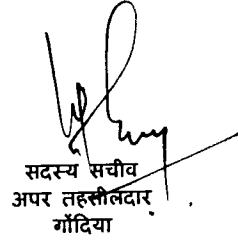 सदस्य सचीव
अपर तहसीलदार
गोंदिया